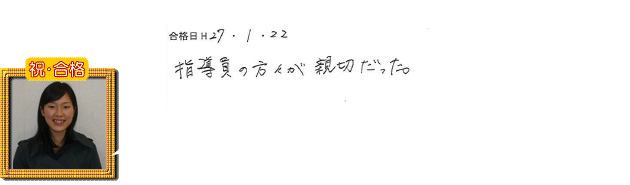 合格日H27・1・22
指導員の方々が親切だった。
祝・合格